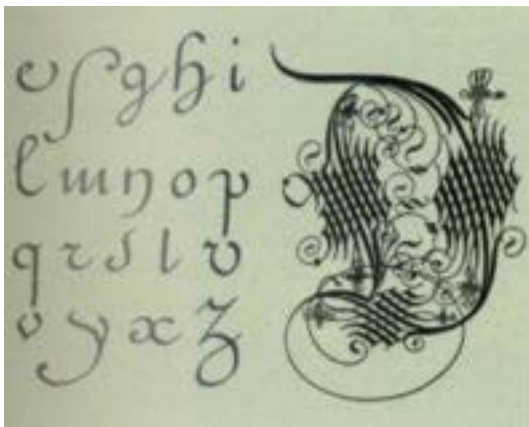 e f g h i
l m n o p
q r s t v
v y x z
D